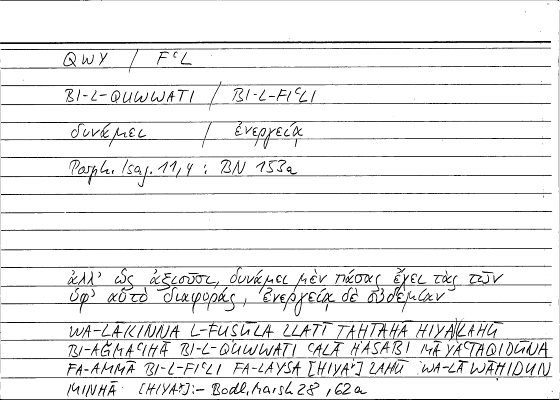 QWY / FᶜL
BI-L-QUWWATI / BI-L-FIᶜLI
δυνάμει / ἐνεργείᾳ
Porph. Isag. 11,4 : BN 153a
ἀλλ' ὡς ἀξιοῦσι, δυνάμει μὲν πάσας ἔχει τὰς τῶν
ὑφ' αὑτὸ διαφοράς, ἐνεργείᾳ δὲ οὐδεμίαν
WA-LĀKINNA L-FUṢŪLA LLATĪ TAḤTAHĀ HIYA LAHŪ
BI-AǦMAᶜIHĀ BI-L-QUWWATI ᶜALĀ ḤASABI MĀ YAᶜTAQIDŪNA
FA-AMMĀ BI-L-FIᶜLI FA-LAYSA [HIYAʳ] LAHŪ WA-LĀ WĀḤIDUN
MINHĀ [HIYAʳ]:- Bodl. Marsh 28, 62a